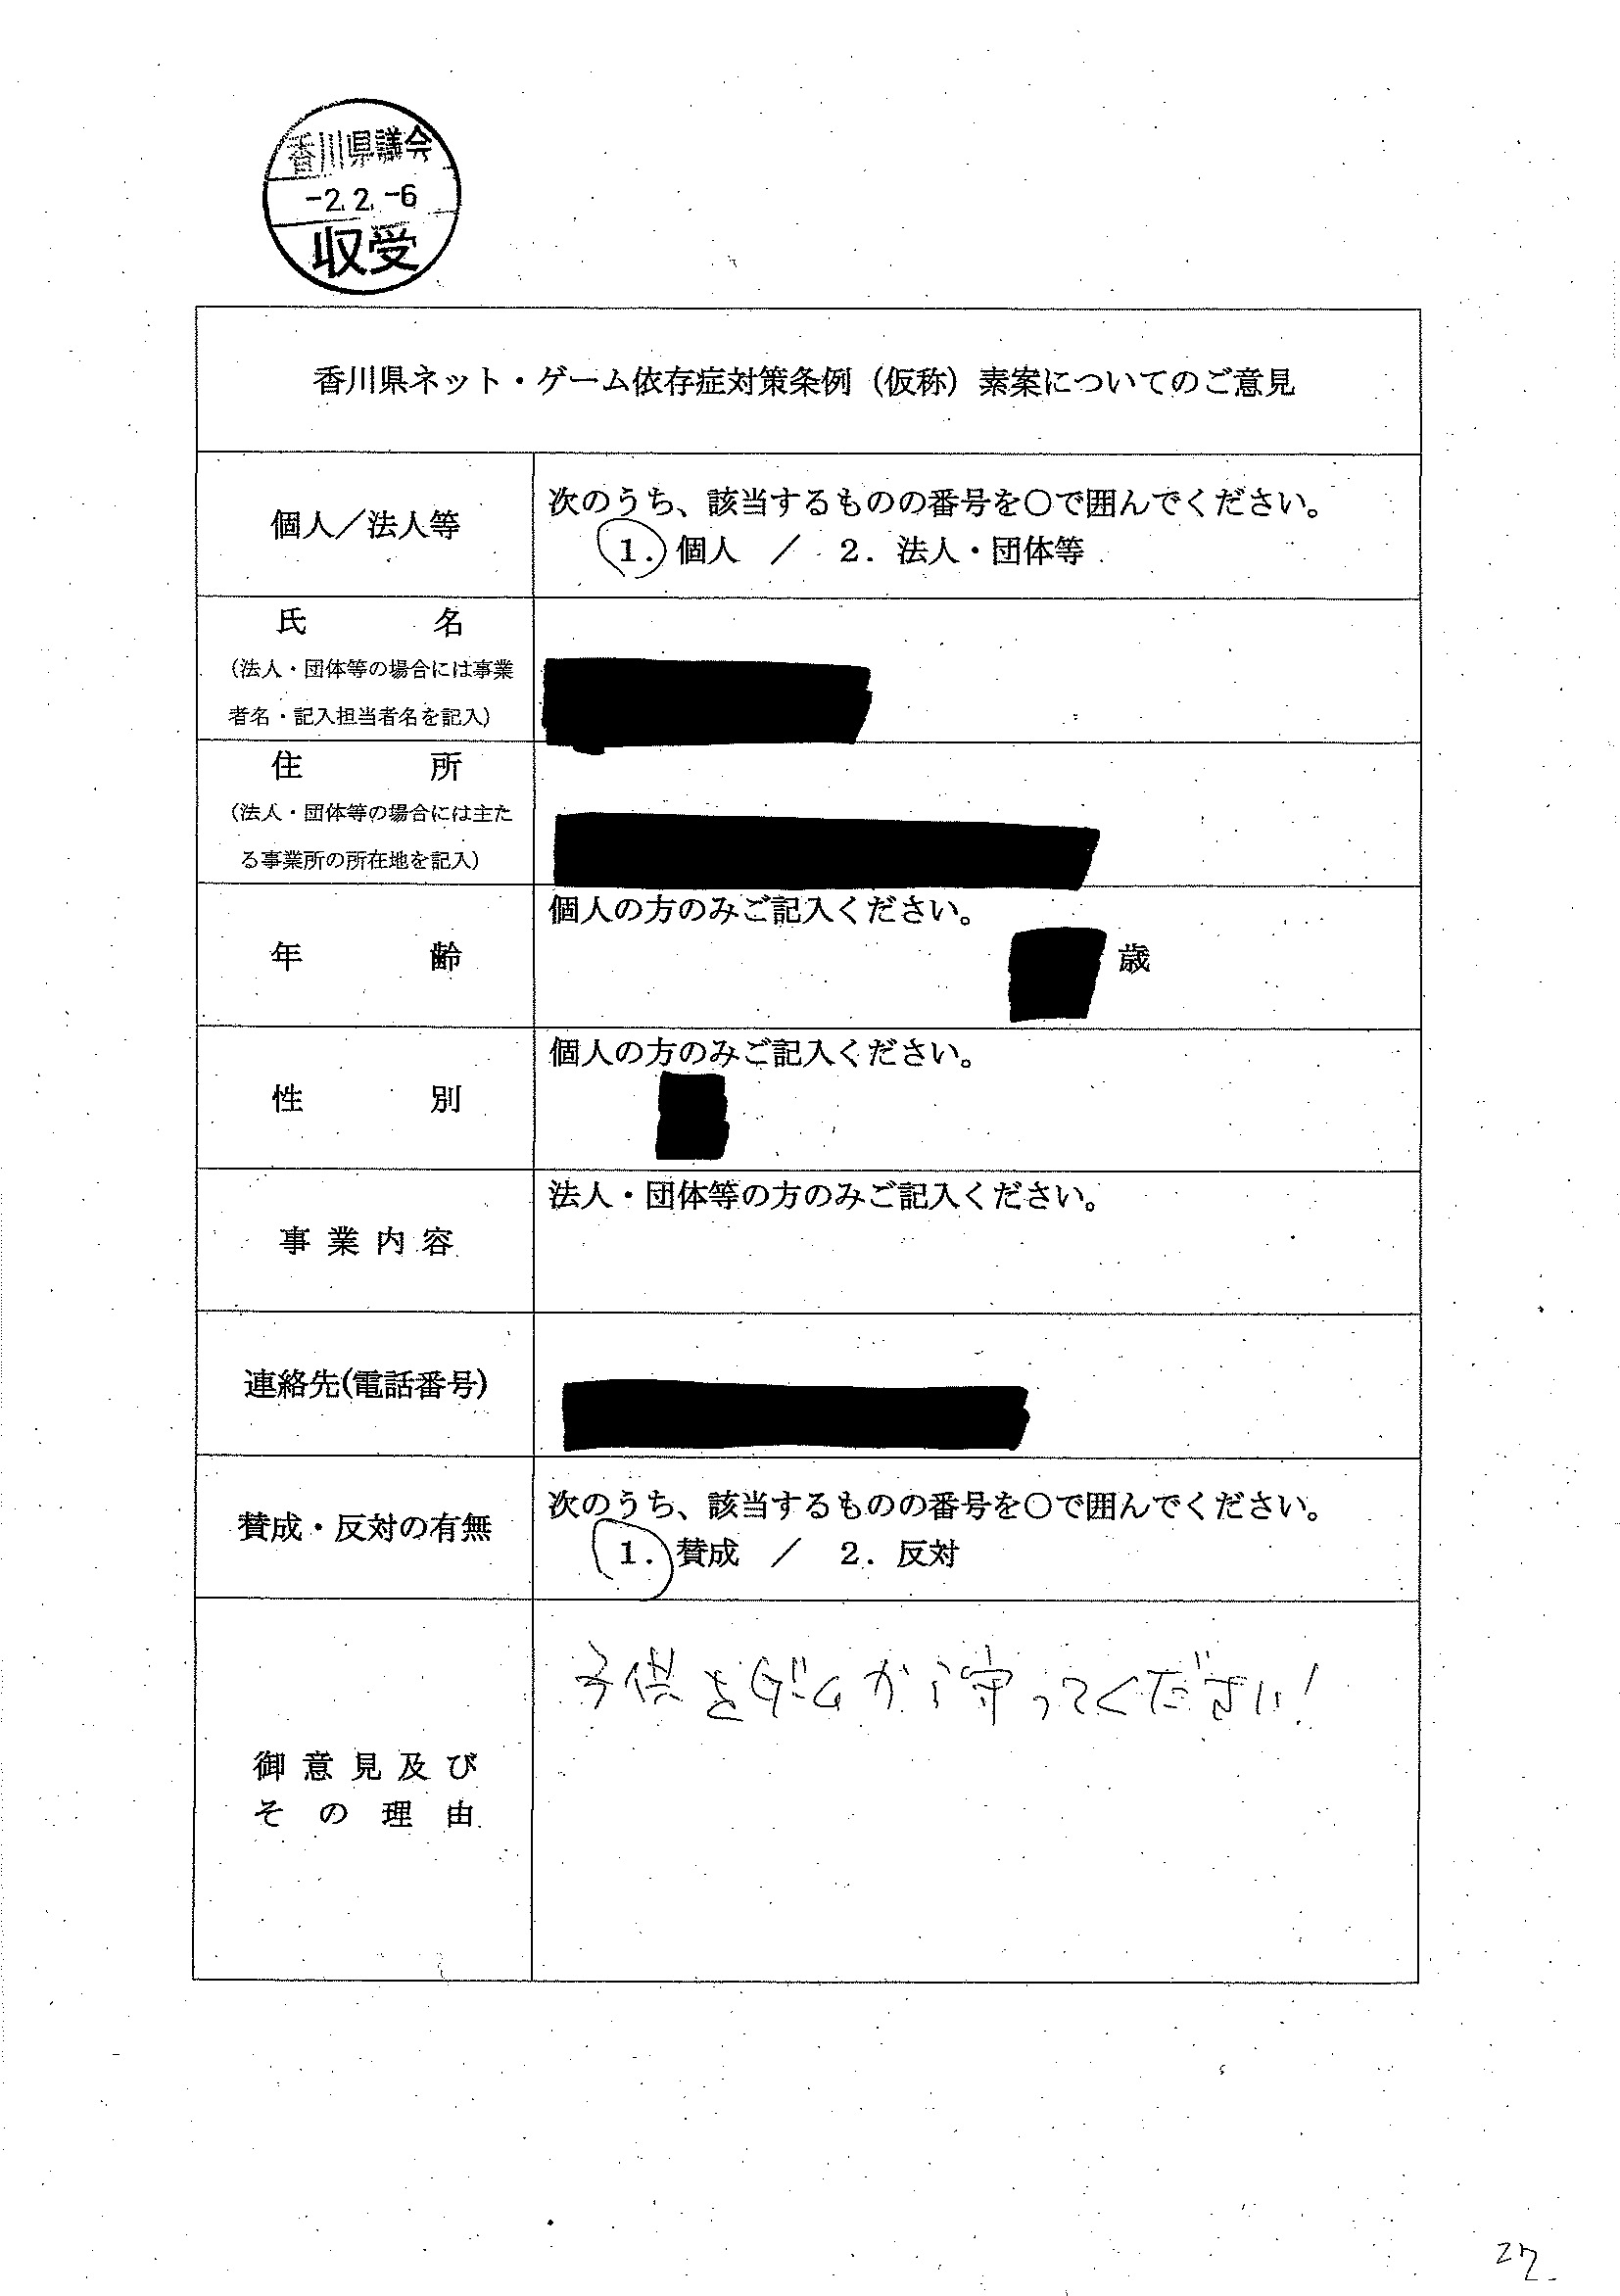 香川県議会
-2.2.-6
収受
香川県ネット・ゲーム依存症対策条例（仮称）素案についてのご意見
個人／法人等
次のうち、該当するものの番号を○で囲んでください。
1．個人　／　2．法人・団体等
氏　名
（法人・団体等の場合には事業
者名・記入担当者名を記入）
住　所
（法人・団体等の場合には主た
る事業所の所在地を記入）
年　齢
個人の方のみご記入ください。
歳
性　別
個人の方のみご記入ください。
事業内容
法人・団体等の方のみご記入ください。
連絡先(電話番号)
賛成・反対の有無
次のうち、該当するものの番号を○で囲んでください。
1．賛成　／　2．反対
御意見及び
その理由
子供をゲームから守ってください!
27